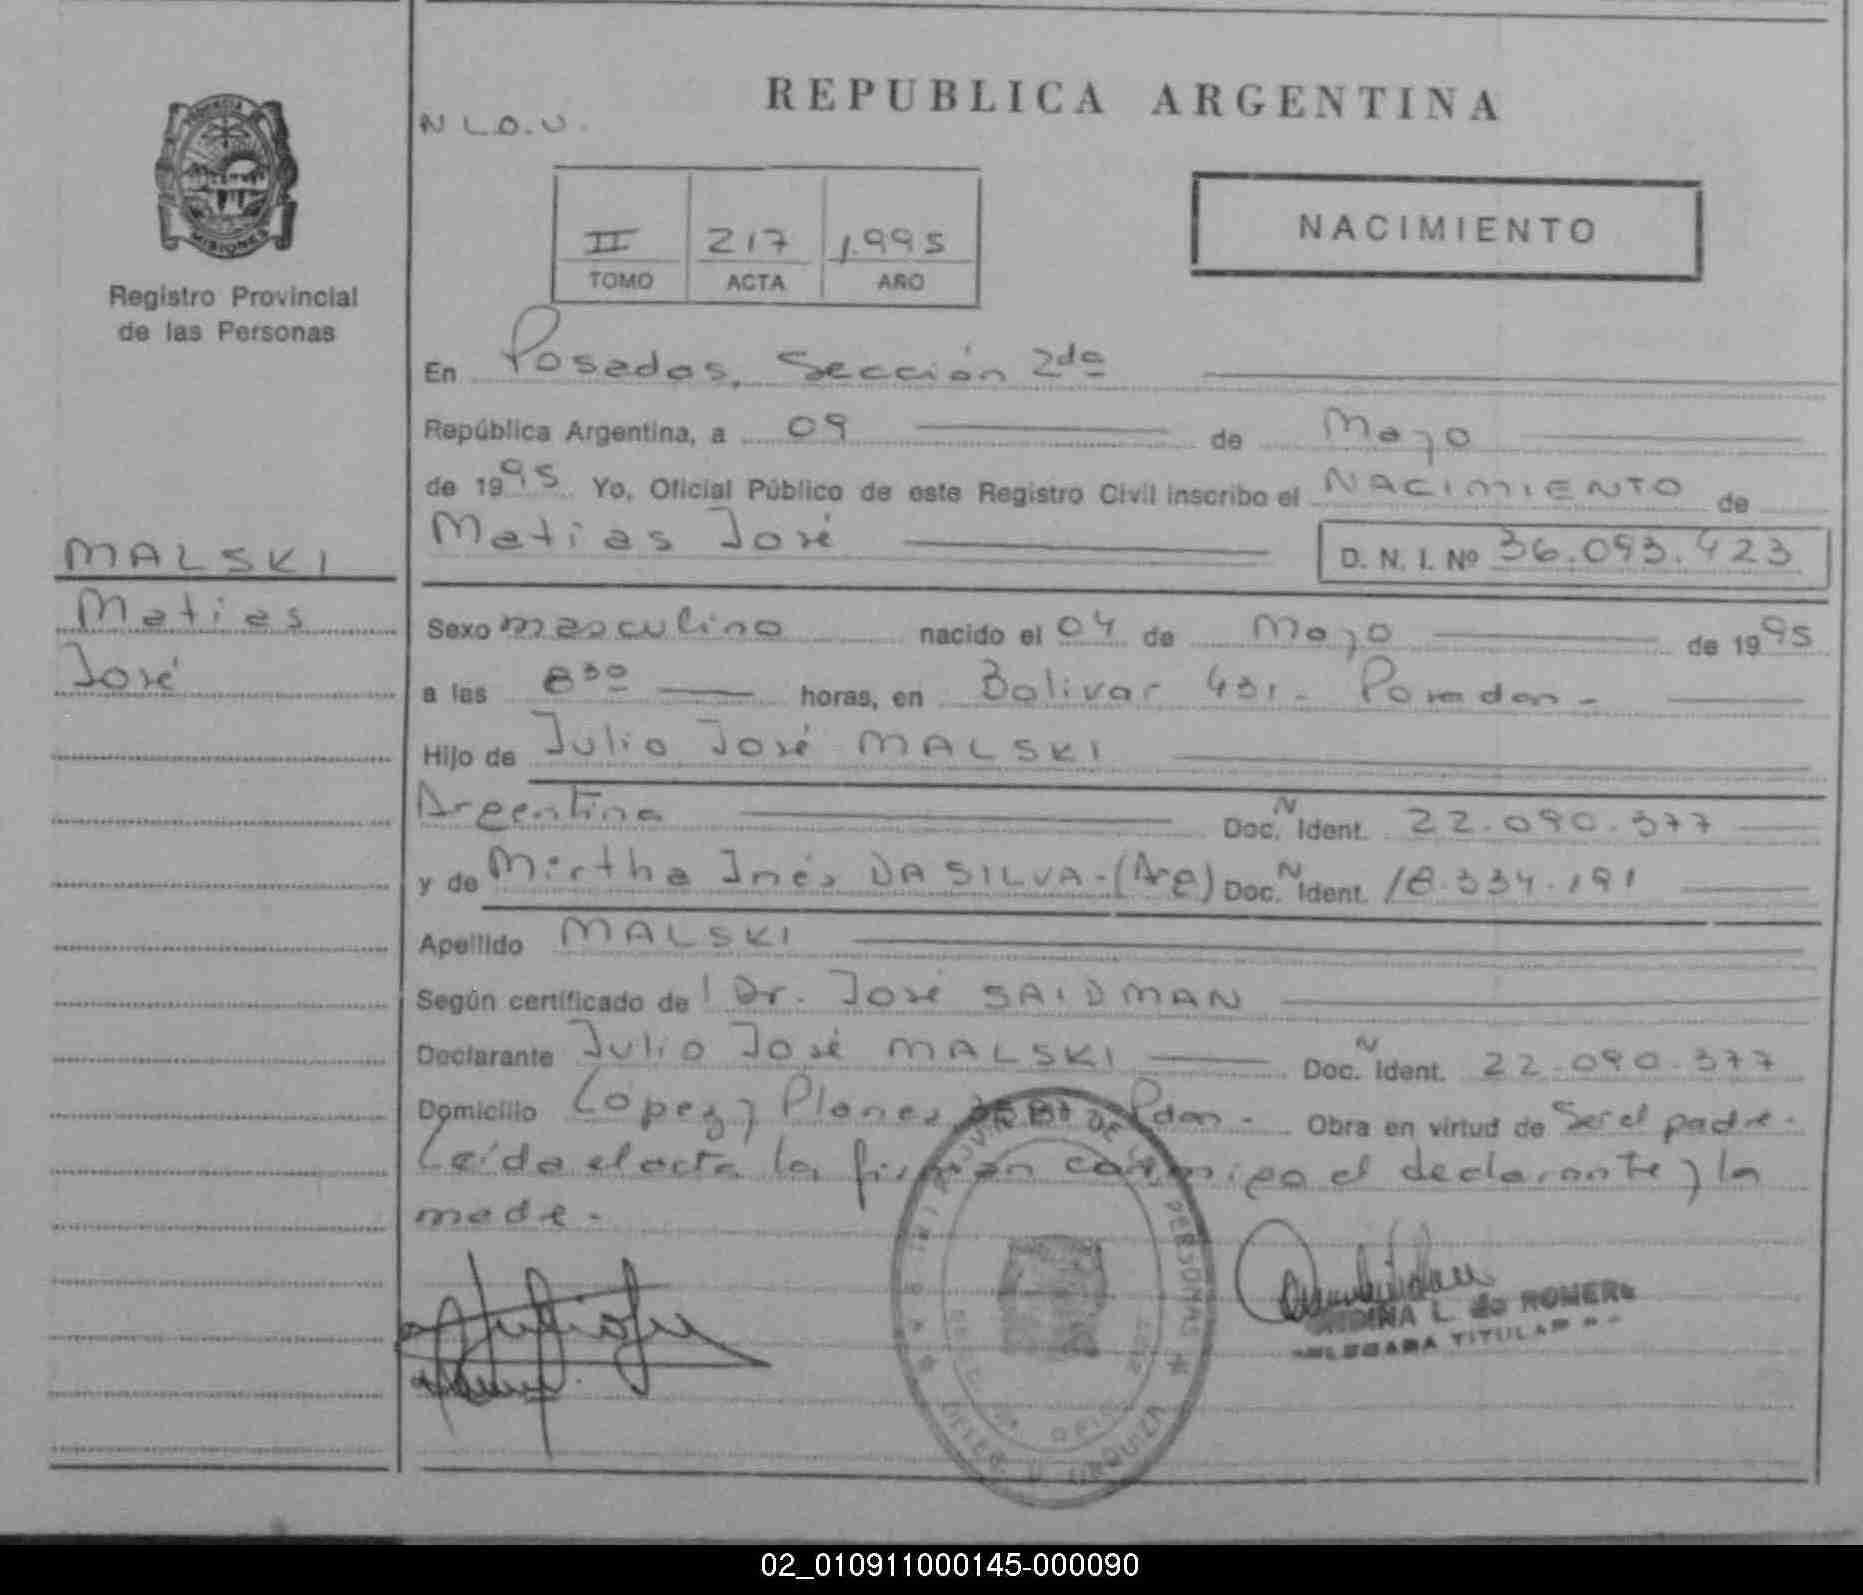 REPUBLICA ARGENTINA
N L.O.U.
NACIMIENTO
II 217 1.995
TOMO ACTA AÑO
PROVINCIA
MISIONES
Registro Provincial
de las Personas
En Posadas, Sección 2da
República Argentina, a 09 de Mayo
de 1995 Yo, Oficial Público de este Registro Civil inscribo el NACIMIENTO de
Matias José D. N. I. Nº 36.093.423
MALSKI
Matias
José
Sexo masculino nacido el 04 de Mayo de 1995
a las 8 30 horas, en Bolivar 431 - Posadas -
Hijo de Julio José MALSKI
Argentina Doc. N Ident. 22.090.377
y de Mirtha Inés DA SILVA - (Arg) Doc. N Ident. 18.334.191
Apellido MALSKI
Según certificado de l Dr. José SAIDMAN
Declarante Julio José MALSKI Doc. N Ident. 22.090.377
Domicilio López y Planes Pdas - Obra en virtud de Ser el padre -
Leída el acta la firman conmigo el declarante y la
madre -
L. de ROMERO
TITULAR
DE LAS PERSONAS
URQUIZA
02_010911000145-000090